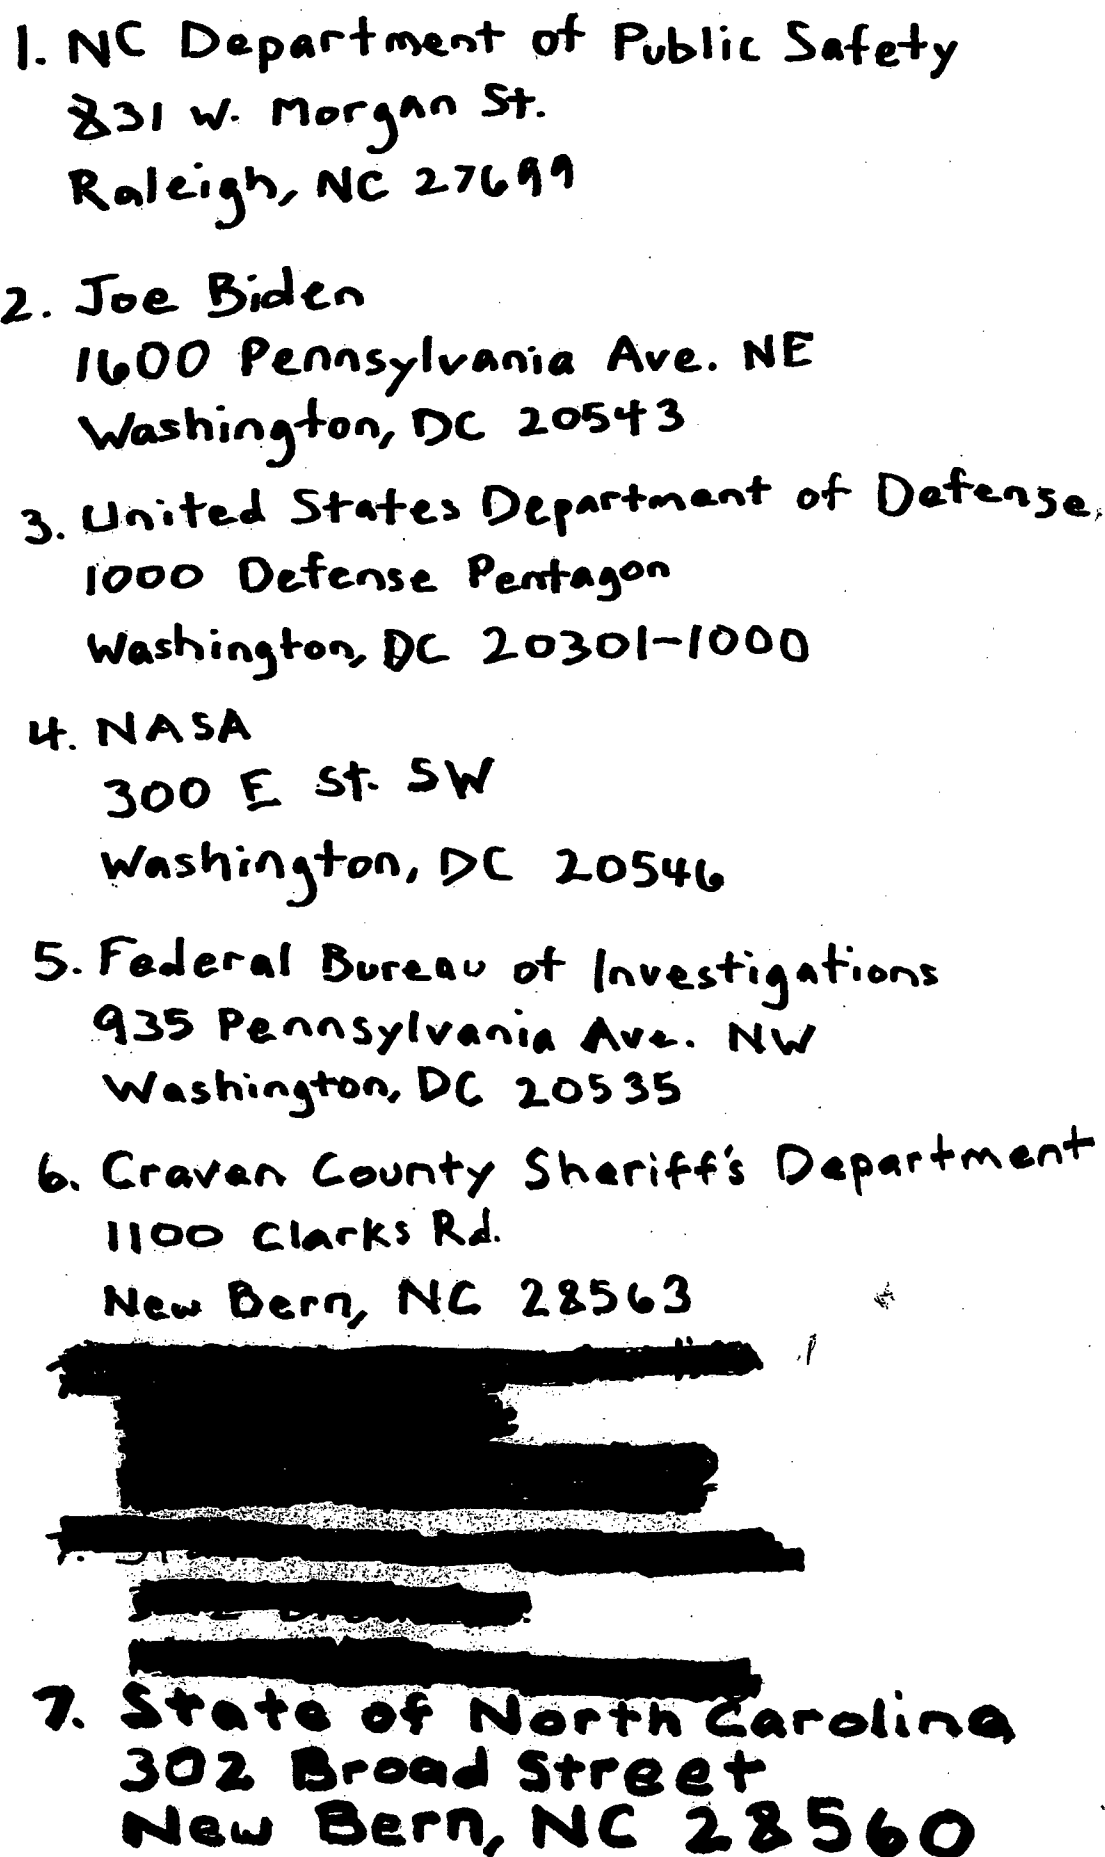 1. NC Department of Public Safety
831 W. Morgan St.
Raleigh, NC 27699
2. Joe Biden
1600 Pennsylvania Ave. NE
Washington, DC 20543
3. United States Department of Defense
1000 Defense Pentagon
Washington, DC 20301-1000
4. NASA
300 E St. SW
Washington, DC 20546
5. Federal Bureau of Investigations
935 Pennsylvania Ave. NW
Washington, DC 20535
6. Craven County Sheriff's Department
1100 Clarks Rd.
New Bern, NC 28563
7. State of North Carolina
302 Broad Street
New Bern, NC 28560